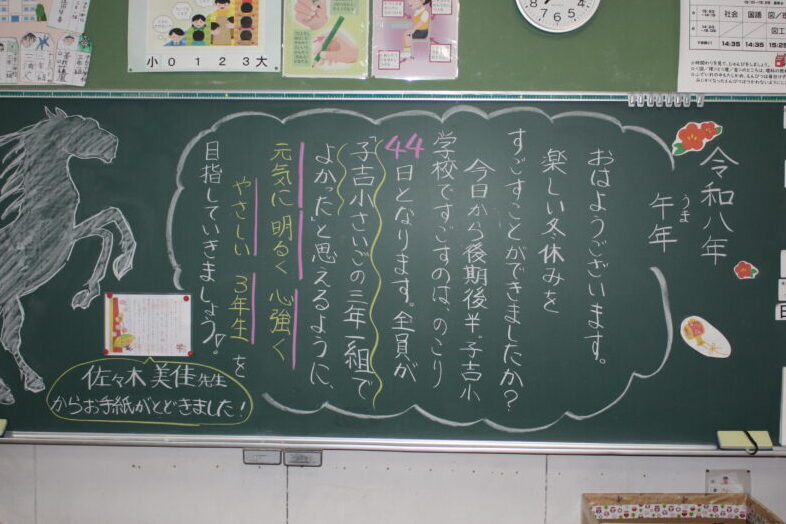 令和八年
うま
午年
おはようございます。
楽しい冬休みを
すごすことができましたか？
今日から後期後半。子吉小
学校ですごすのは、のこり
44日となります。全員が
「子吉小さいごの三年一組で
よかった」と思えるように、
元気に 明るく 心強く
やさしい 3年生 を
目指していきましょう！
佐々木 美佳先生
からお手紙がとどきました！
小 0 1 2 3 大
社会 国語
14:35 14:35 15:25